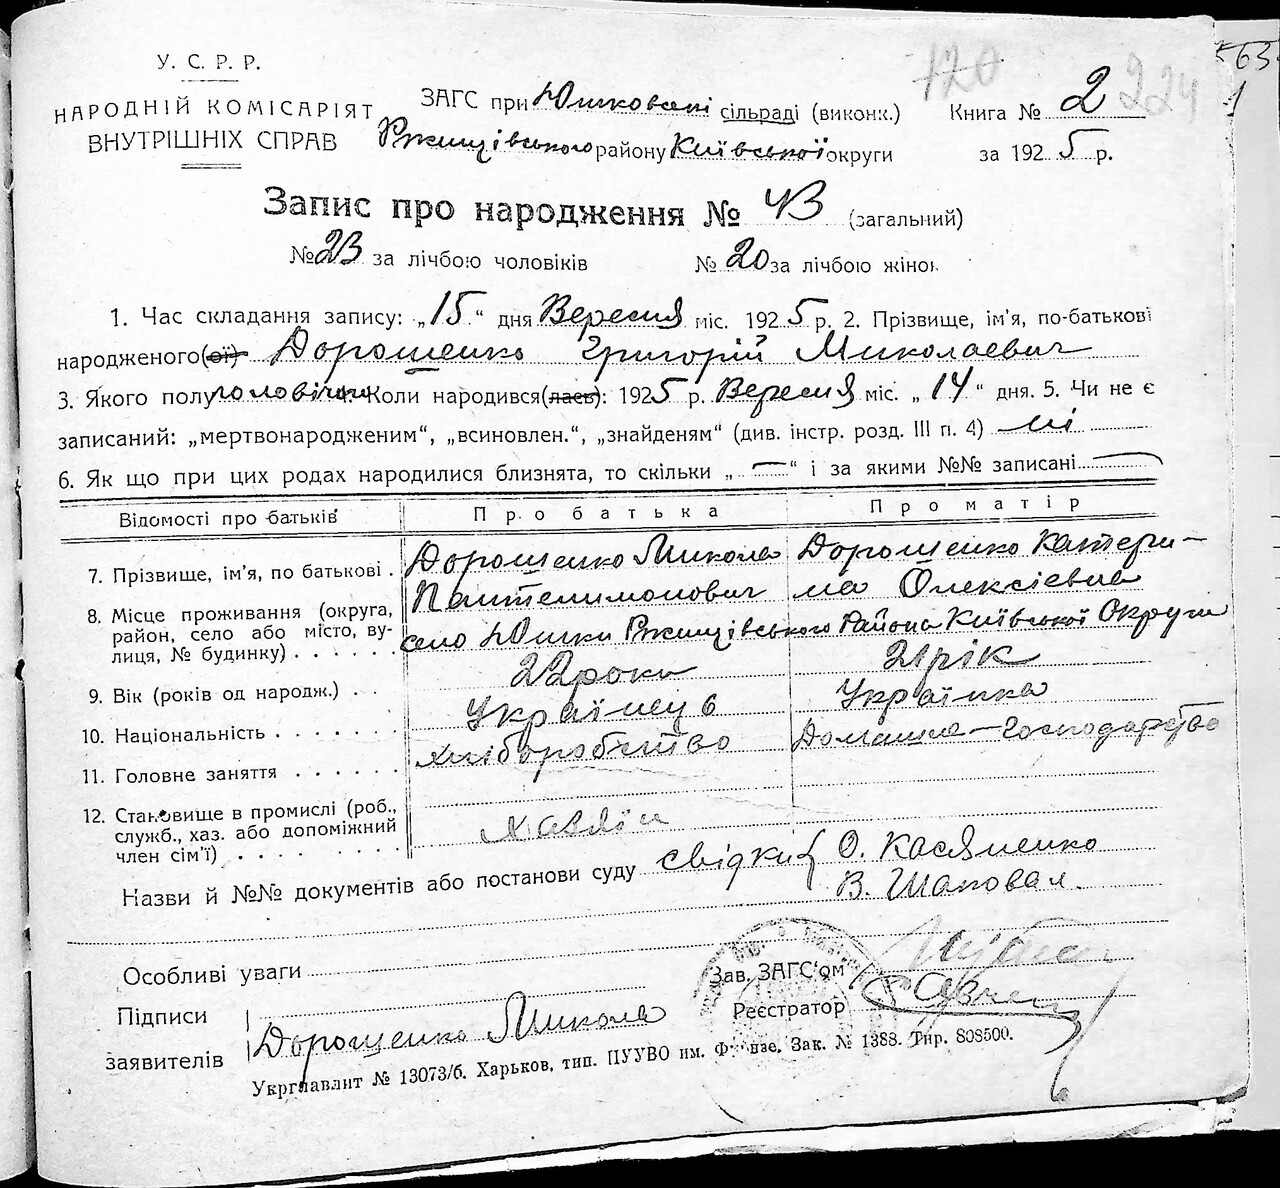 У. С. Р. Р.
НАРОДНІЙ КОМІСАРІЯТ
ВНУТРІШНІХ СПРАВ
ЗАГС при Юшковскі сільраді (виконк.)
Ржищівського району Київської округи
120
Книга № 2 224
за 1925 р.
Запис про народження № 43 (загальний)
№ 23 за лічбою чоловіків № 20 за лічбою жінок
1. Час складання запису: „15“ дня Вересня міс. 1925 р. 2. Прізвище, ім'я, по-батькові
народженого(ої) Дорошенко Григорій Миколаевич
3. Якого полу чоловічого 4. Коли народився(лась): 1925 р. Вересня міс. „14“ дня. 5. Чи не є
записаний: „мертвонародженим“, „всиновлен.“, „знайденям“ (див. інстр. розд. III п. 4) ні
6. Як що при цих родах народилися близнята, то скільки „—“ і за якими №№ записані —
Відомості про батьків Про батька Про матір
7. Прізвище, ім'я, по батькові . Дорошенко Микола Пантелимонович Дорошенко Катерина Олексієвна
8. Місце проживання (округа,
район, село або місто, ву-
лиця, № будинку) . . . . . село Юшки Ржищівського Района Київської Округи
9. Вік (років од народж.) . . 22 роки 21 рік
10. Національність . . . . . . . Українець Українка
11. Головне заняття . . . . . . хліборобство Домашнє-Господарство
12. Становище в промислі (роб.,
служб., хаз. або допоміжний
член сім'ї) . . . . . . . . Хазяін
Назви й №№ документів або постанови суду свідки { О. Касяненко
В. Шаповал.
Особливі уваги
Зав. ЗАГС'ом
Підписи
заявителів Дорошенко Микола
Реєстратор
Укрглавлит № 13073/б. Харьков, тип. ПУУВО им. Фрунзе. Зак. № 1388. Тир. 808500.